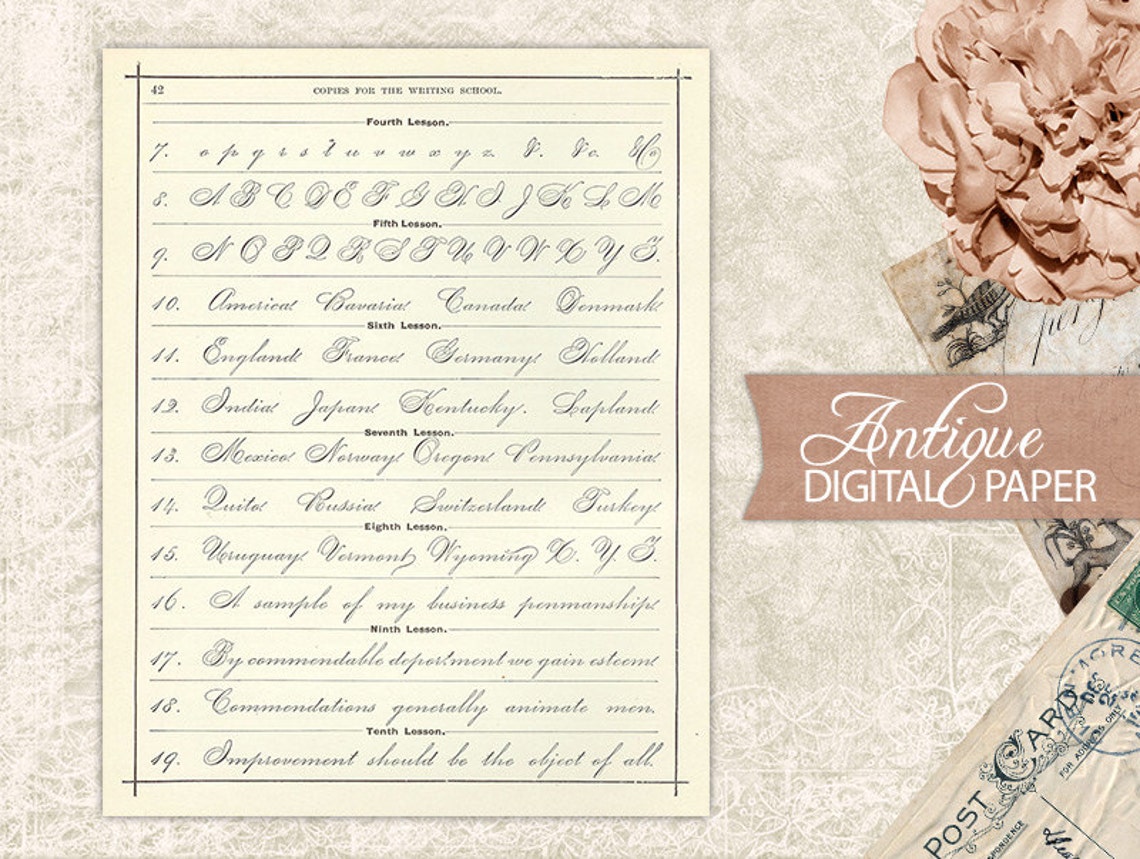 42 COPIES FOR THE WRITING SCHOOL.
Fourth Lesson.
7. o p q r s t u v w x y z &. &c. &Co
8. A B C D E F G H I J K L M
Fifth Lesson.
9. N O P Q R S T U V W X Y Z.
10. America Bavaria Canada Denmark
Sixth Lesson.
11. England France Germany Holland
12. India Japan Kentucky. Lapland
Seventh Lesson.
13. Mexico Norway Oregon Pennsylvania
14. Quito Russia Switzerland Turkey
Eighth Lesson.
15. Uruguay Vermont Wyoming X. Y. Z.
16. A sample of my business penmanship
Ninth Lesson.
17. By commendable deportment we gain esteem
18. Commendations generally animate men.
Tenth Lesson.
19. Improvement should be the object of all.
Antique
DIGITAL PAPER
POST CARD
FOR ADDRESS ONLY